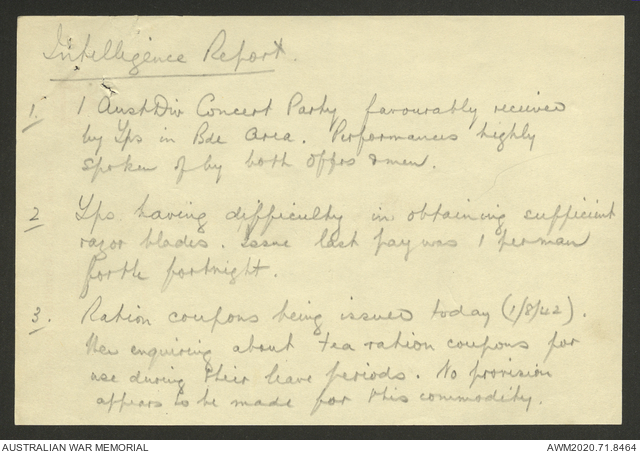 Intelligence Report.
1. 1 Aust Div Concert Party favourably received
by Tps in Bde Area. Performances highly
spoken of by both offrs & men.
2 Tps. having difficulty in obtaining sufficient
razor blades. Issue last pay was 1 per man
for the fortnight.
3. Ration coupons being issued today (1/8/42).
Men enquiring about tea ration coupons for
use during their leave periods. No provision
appears to be made for this commodity.
AUSTRALIAN WAR MEMORIAL
AWM2020.71.8464